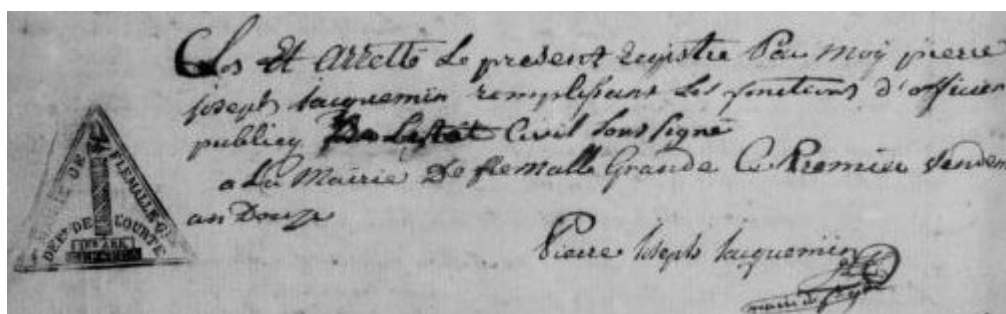 Clos Et Arretté Le present registre Par Moy pierre
joseph Jacquemin remplissant les fonctions d'officier
publicq De Lestat Civil Sous Signé
a La Mairie De flemalle Grande Ce Premier Vendem
an Douze
Pierre Joseph Jacquemin
DE FLEMALLE GDE
DEPT DE L'OURTE